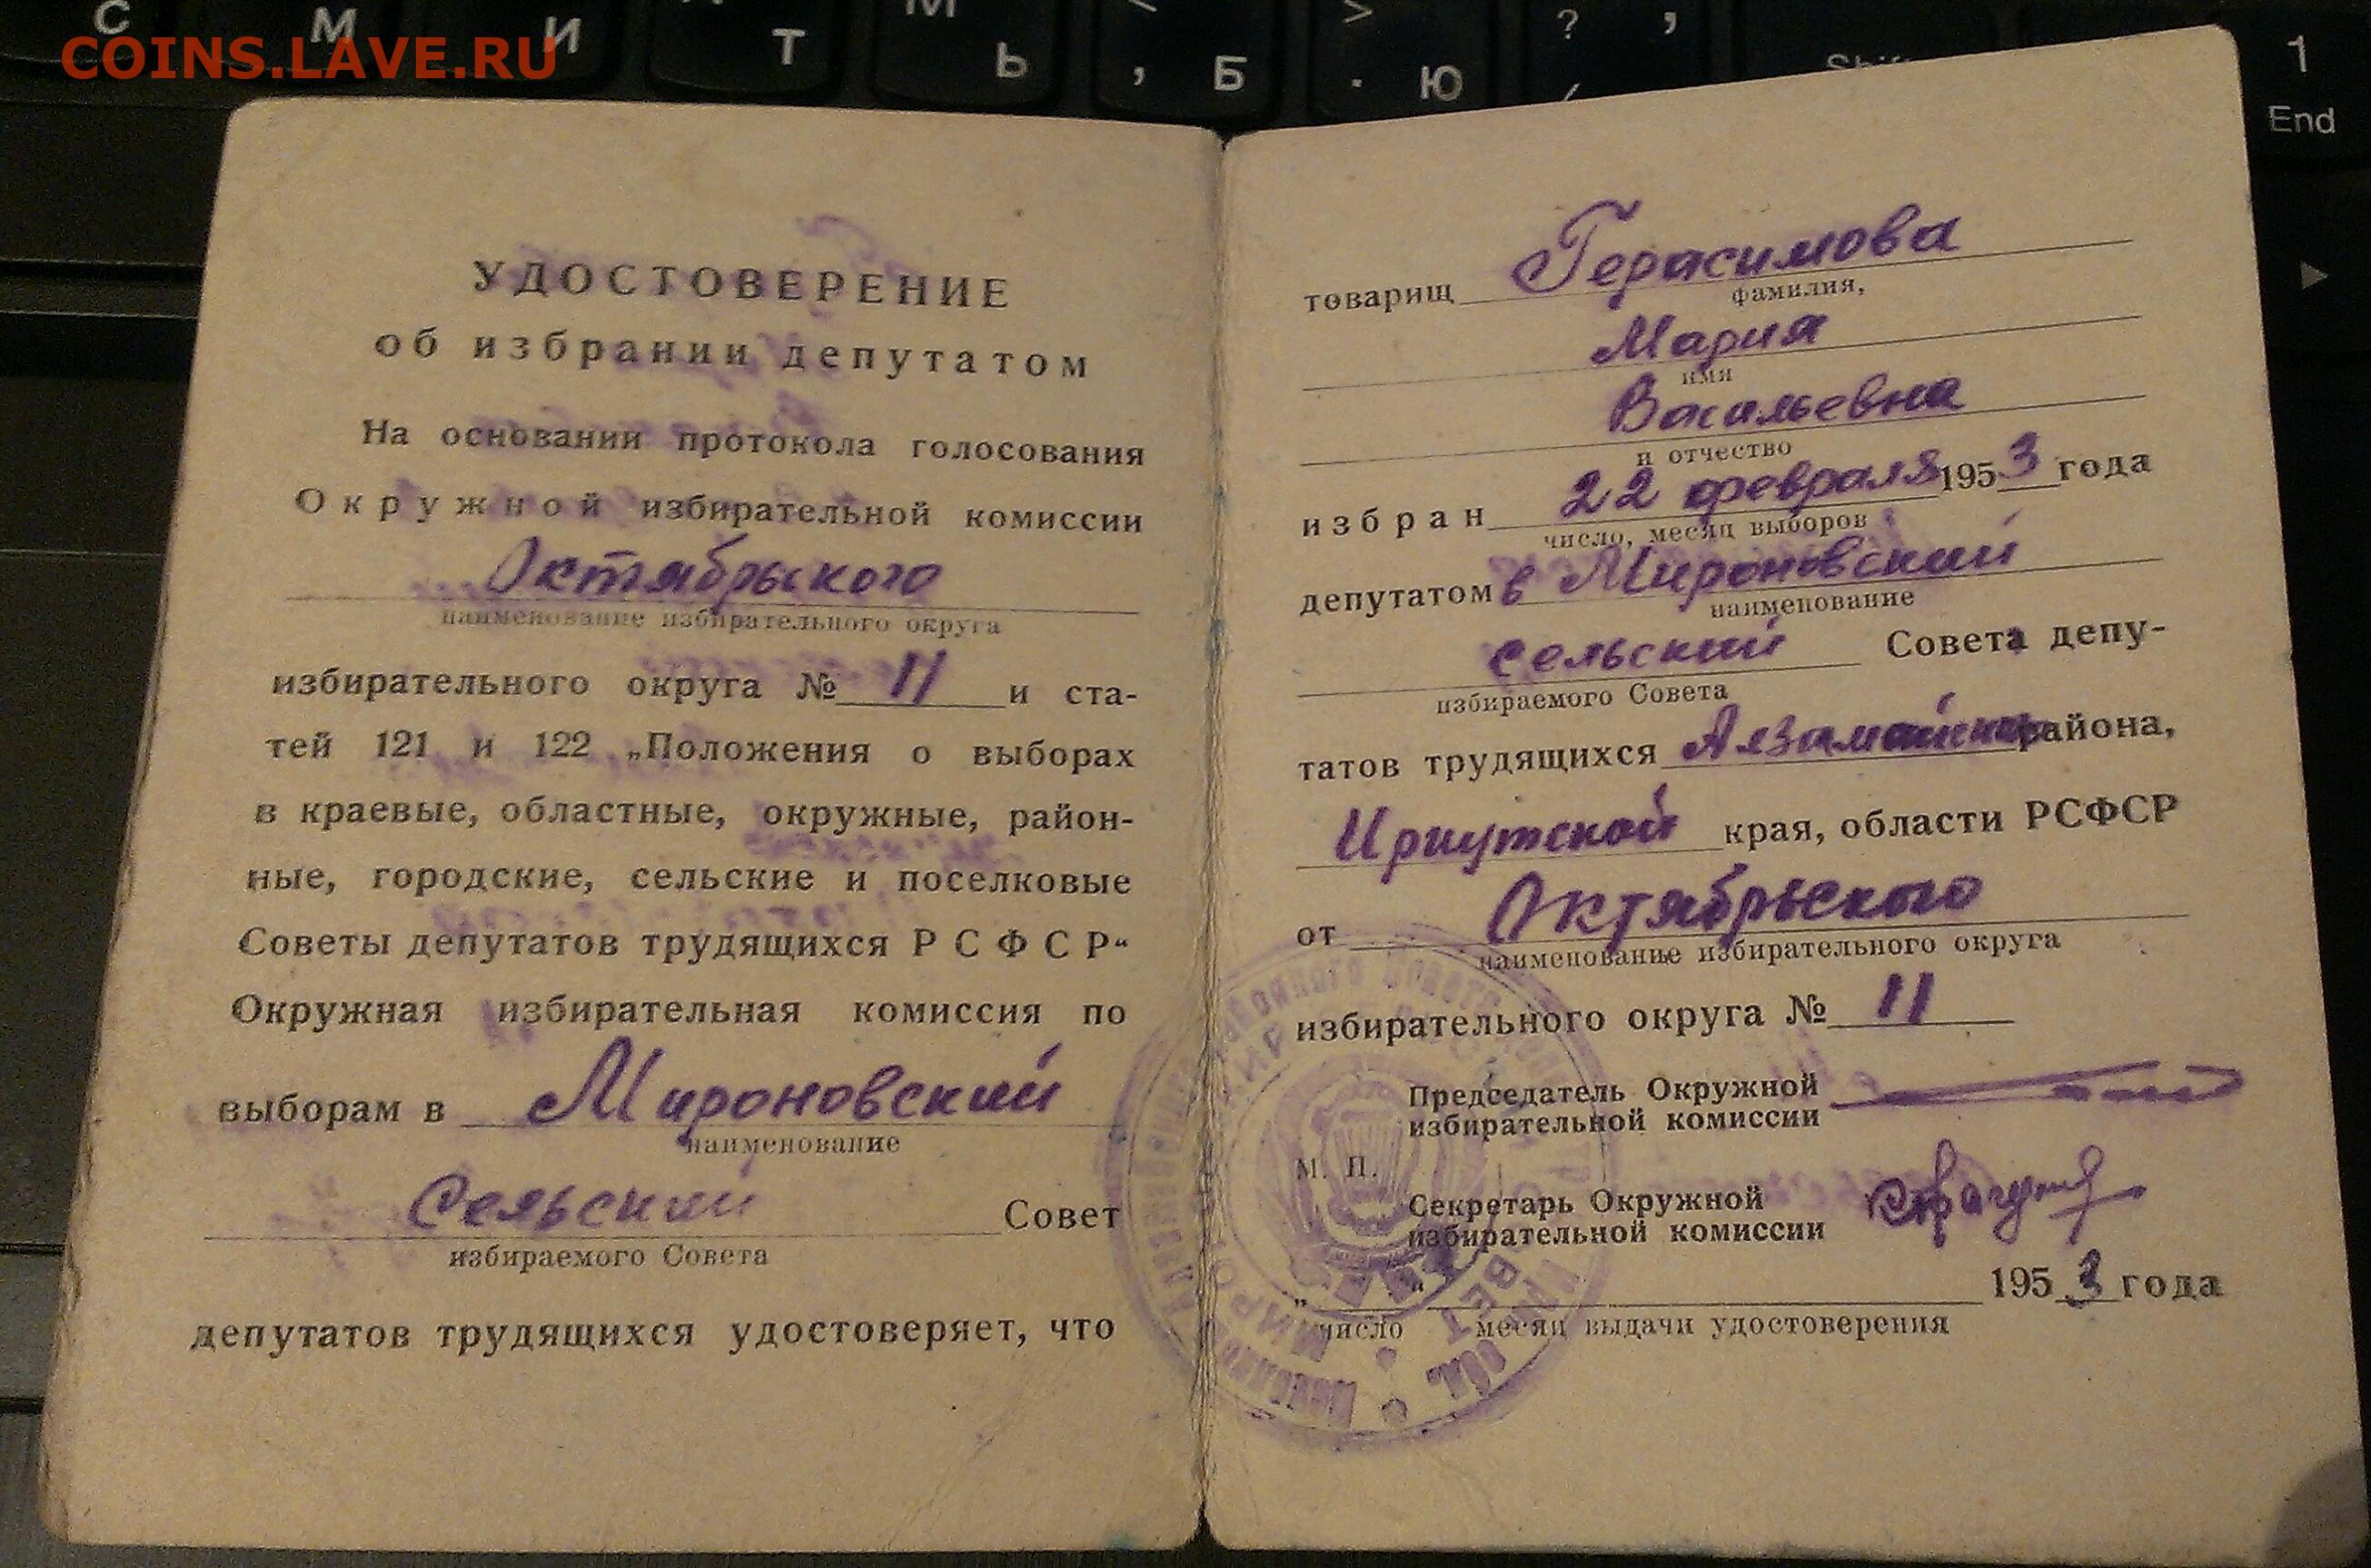 COINS.LAVE.RU
С М И Т Ь , Б . Ю ? , /
Shift
1
End
УДОСТОВЕРЕНИЕ
об избрании депутатом
На основании протокола голосования
Окружной избирательной комиссии
Октябрьского
наименование избирательного округа
избирательного округа № 11 и ста-
тей 121 и 122 „Положения о выборах
в краевые, областные, окружные, район-
ные, городские, сельские и поселковые
Советы депутатов трудящихся РСФСР“
Окружная избирательная комиссия по
выборам в Мироновский
наименование
Сельский Совет
избираемого Совета
депутатов трудящихся удостоверяет, что
товарищ Герасимова
фамилия,
Мария
имя
Васильевна
и отчество
избран 22 февраля 1953 года
число, месяц выборов
депутатом в Мироновский
наименование
сельский Совета депу-
избираемого Совета
татов трудящихся района,
Иркутской края, области РСФСР
от Октябрьского
наименование избирательного округа
избирательного округа № 11
Председатель Окружной
избирательной комиссии
М. П.
Секретарь Окружной
избирательной комиссии
„ “ 1953 года
число месяц выдачи удостоверения